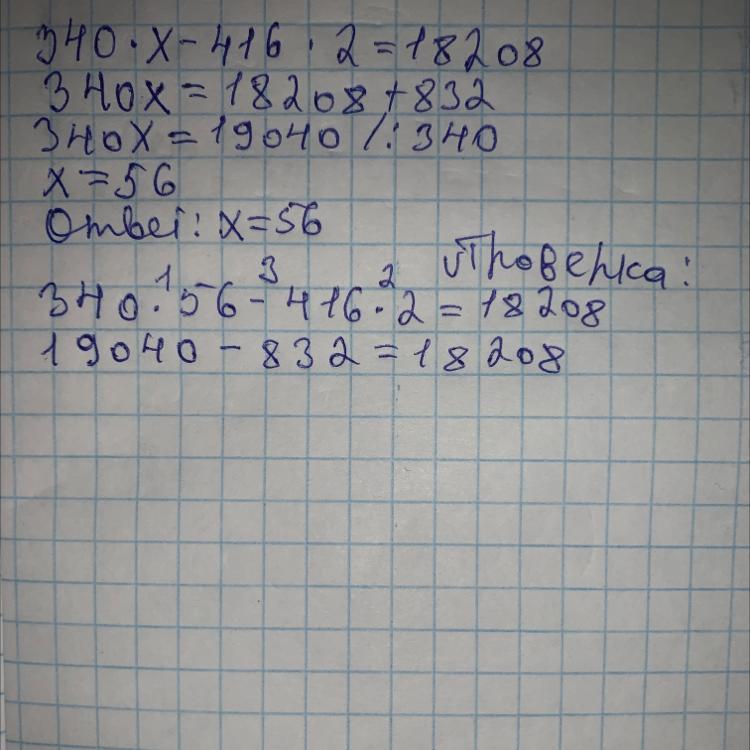 340·x-416·2=18208
340x=18208+832
340x=19040 /:340
x=56
Ответ: x=56
Проверка:
340·¹56-³416·²2=18208
19040-832=18208